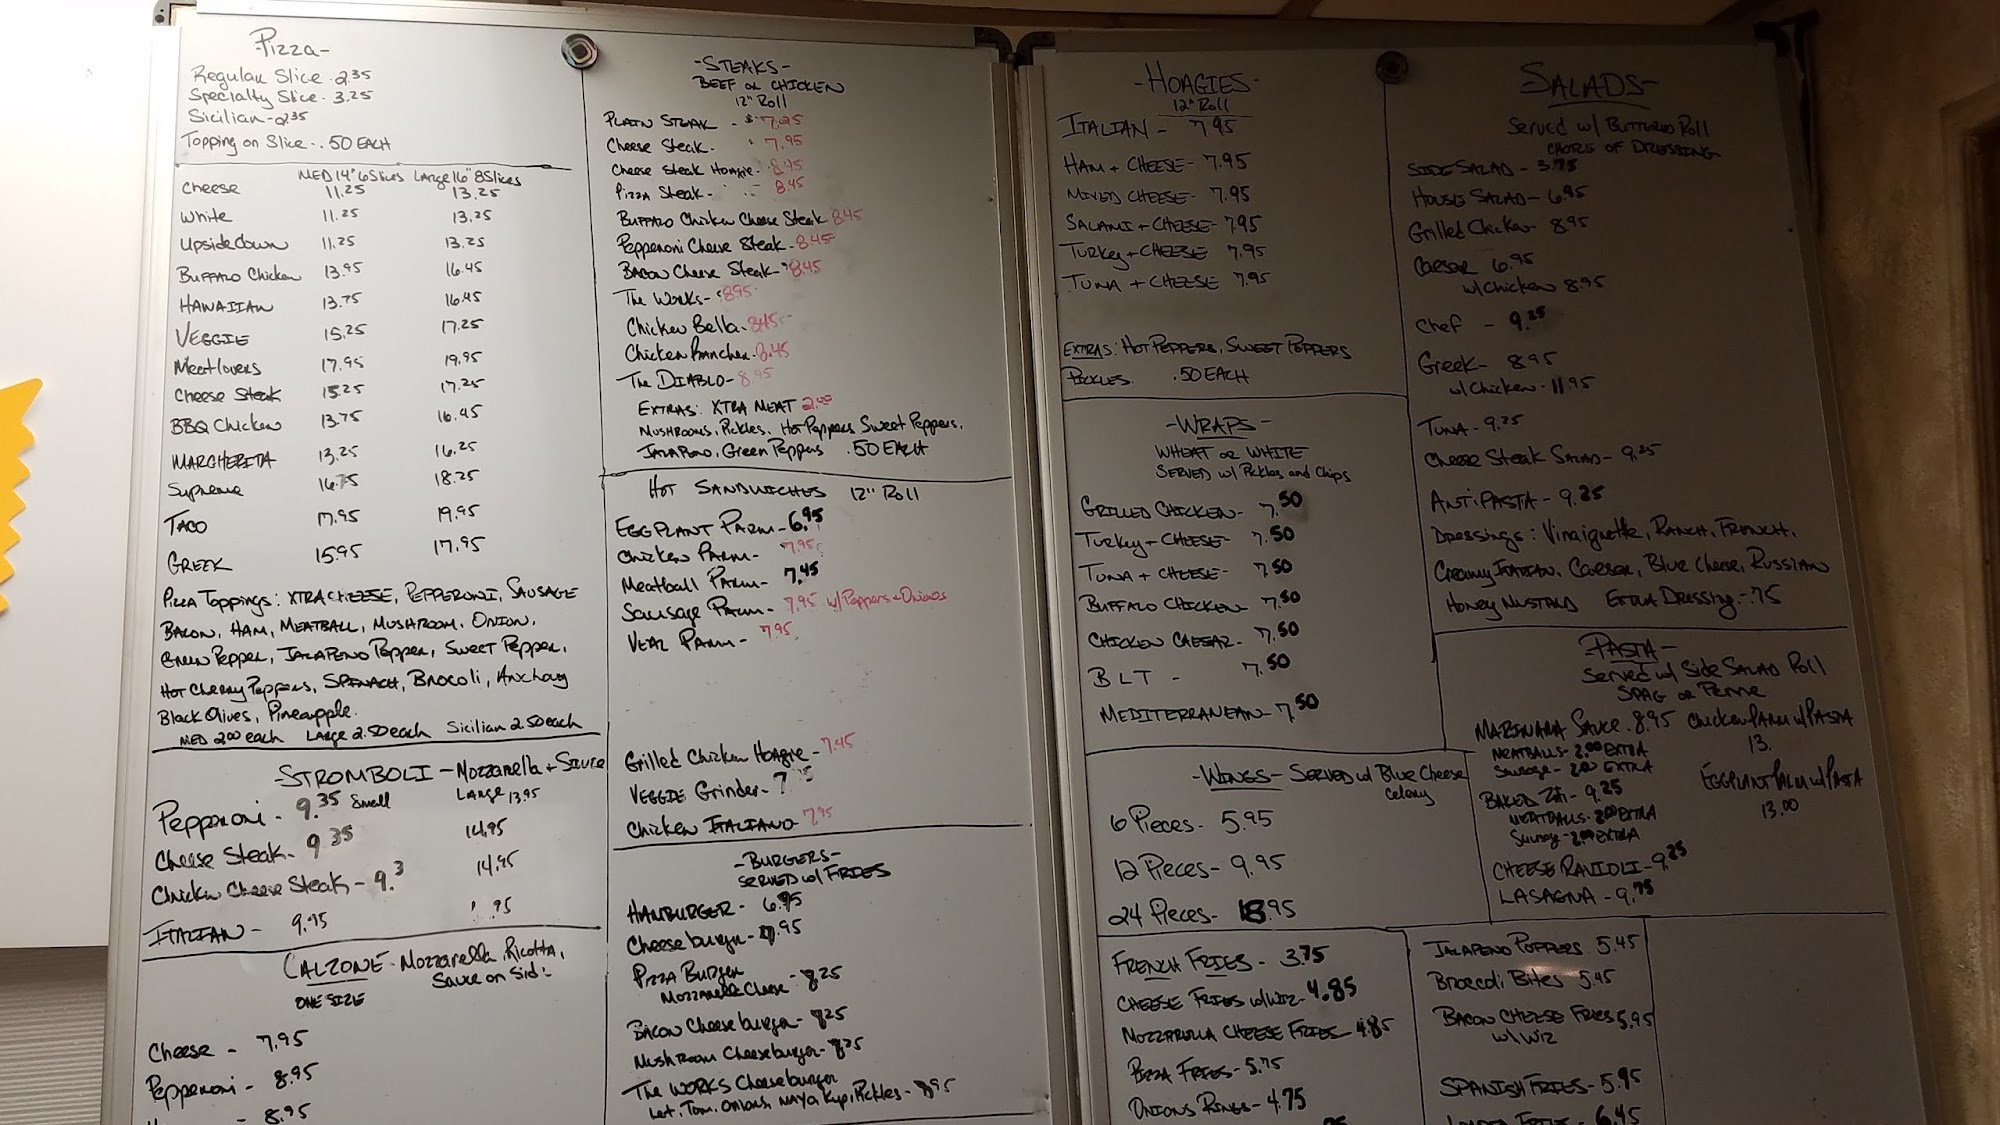 -Pizza-
Regular Slice - 2.35
Specialty Slice - 3.25
Sicilian - 2.35
Topping on Slice - .50 EACH
MED 14" 6 Slices LARGE 16" 8 Slices
Cheese 11.25 13.25
White 11.25 13.25
Upsidedown 11.25 13.25
BUFFALO Chicken 13.95 16.45
HAWAIIAN 13.75 16.45
VEGGIE 15.25 17.25
Meatlovers 17.95 19.95
Cheese Steak 15.25 17.25
BBQ Chicken 13.75 16.45
MARGHERITA 13.25 16.25
Supreme 16.75 18.25
TACO 17.95 19.95
GREEK 15.95 17.95
Pizza Toppings: XTRA CHEESE, PEPPERONI, SAUSAGE
BACON, HAM, MEATBALL, MUSHROOM, ONION,
Green Pepper, JALAPENO Pepper, Sweet Pepper,
Hot Cherry Peppers, SPINACH, Brocoli, Anchovy
Black Olives, Pineapple.
MED 2.00 each LARGE 2.50 each Sicilian 2.50 each
-STROMBOLI - Mozzarella + SAUCE
Pepperoni - 9.35 Small LARGE 13.95
Cheese Steak - 9.35 14.95
Chicken Cheese Steak - 9.3 14.95
ITALIAN - 9.95 .95
CALZONE - Mozzarella, Ricotta,
Sauce on Side
ONE SIZE
Cheese - 7.95
Pepperoni - 8.95
8.95
-STEAKS-
BEEF or CHICKEN
12" Roll
PLAIN STEAK - $7.25
Cheese Steak - 7.95
Cheese Steak Hoagie - 8.45
Pizza Steak - 8.45
BUFFALO Chicken Cheese Steak 8.45
Pepperoni Cheese Steak - 8.45
BACON Cheese Steak - 8.45
The Works - 8.95
Chicken Bella - 8.45
Chicken Rancher - 8.45
The DIABLO - 8.45
EXTRAS: XTRA MEAT 2.00
MUSHROOMS, Pickles, Hot Peppers, Sweet Peppers,
JALAPENO, Green Peppers .50 EACH
HOT SANDWICHES 12" Roll
EGGPLANT PARM - 6.95
Chicken PARM - 7.95
Meatball PARM - 7.45
Sausage PARM - 7.95 w/ Peppers + Onions
VEAL PARM - 7.95
Grilled Chicken Hoagie - 7.45
VEGGIE Grinder - 7
Chicken ITALIANO 7.95
-BURGERS-
SERVED w/ FRIES
HAMBURGER - 6.95
Cheeseburger - 7.95
Pizza Burger
Mozzarella Cheese - 8.25
Bacon Cheeseburger - 8.25
Mushroom Cheeseburger - 8.25
The WORKS Cheeseburger
Let, Tom, Onions, Mayo, Kup, Pickles - 8.95
-HOAGIES-
12" Roll
ITALIAN - 7.95
HAM + CHEESE - 7.95
MIXED CHEESE - 7.95
SALAMI + CHEESE - 7.95
Turkey + CHEESE - 7.95
TUNA + CHEESE 7.95
EXTRAS: HOT PEPPERS, SWEET PEPPERS
PICKLES. .50 EACH
-WRAPS-
WHEAT or WHITE
SERVED w/ Pickles and Chips
GRILLED CHICKEN - 7.50
Turkey + CHEESE - 7.50
TUNA + CHEESE - 7.50
BUFFALO CHICKEN 7.50
CHICKEN CAESAR - 7.50
BLT - 7.50
MEDITERRANEAN - 7.50
-WINGS - SERVED w/ Blue Cheese
Celery
6 Pieces - 5.95
12 Pieces - 9.95
24 Pieces - 18.95
FRENCH FRIES - 3.75
CHEESE FRIES w/ WIZ - 4.85
MOZZARELLA CHEESE FRIES - 4.85
Pizza FRIES - 5.75
ONIONS RINGS - 4.75
SALADS -
Served w/ BUTTERED Roll
CHOICE OF DRESSING
SIDE SALAD - 3.75
HOUSE SALAD - 6.95
Grilled Chicken - 8.95
CAESAR 6.95
w/ Chicken 8.95
Chef - 9.25
Greek - 8.95
w/ Chicken - 11.95
TUNA - 9.25
Cheese Steak SALAD - 9.25
ANTIPASTA - 9.25
Dressings: Vinaigrette, RANCH, FRENCH,
Creamy ITALIAN, Caesar, Blue Cheese, RUSSIAN
Honey MUSTARD EXTRA Dressing - .75
PASTA -
Served w/ Side SALAD Roll
SPAG or Penne
MARINARA SAUCE 8.95 Chicken PARM w/ PASTA
MEATBALLS - 2.00 EXTRA 13.
Sausage - 2.00 EXTRA
EGGPLANT PARM w/ PASTA
BAKED Ziti - 9.25 13.00
MEATBALLS - 2.00 EXTRA
Sausage - 2.00 EXTRA
CHEESE RAVIOLI - 9.25
LASAGNA - 9.75
JALAPENO POPPERS 5.45
Broccoli Bites 5.45
BACON CHEESE FRIES 5.95
w/ WIZ
SPANISH FRIES - 5.95
LOADED FRIES - 6.45